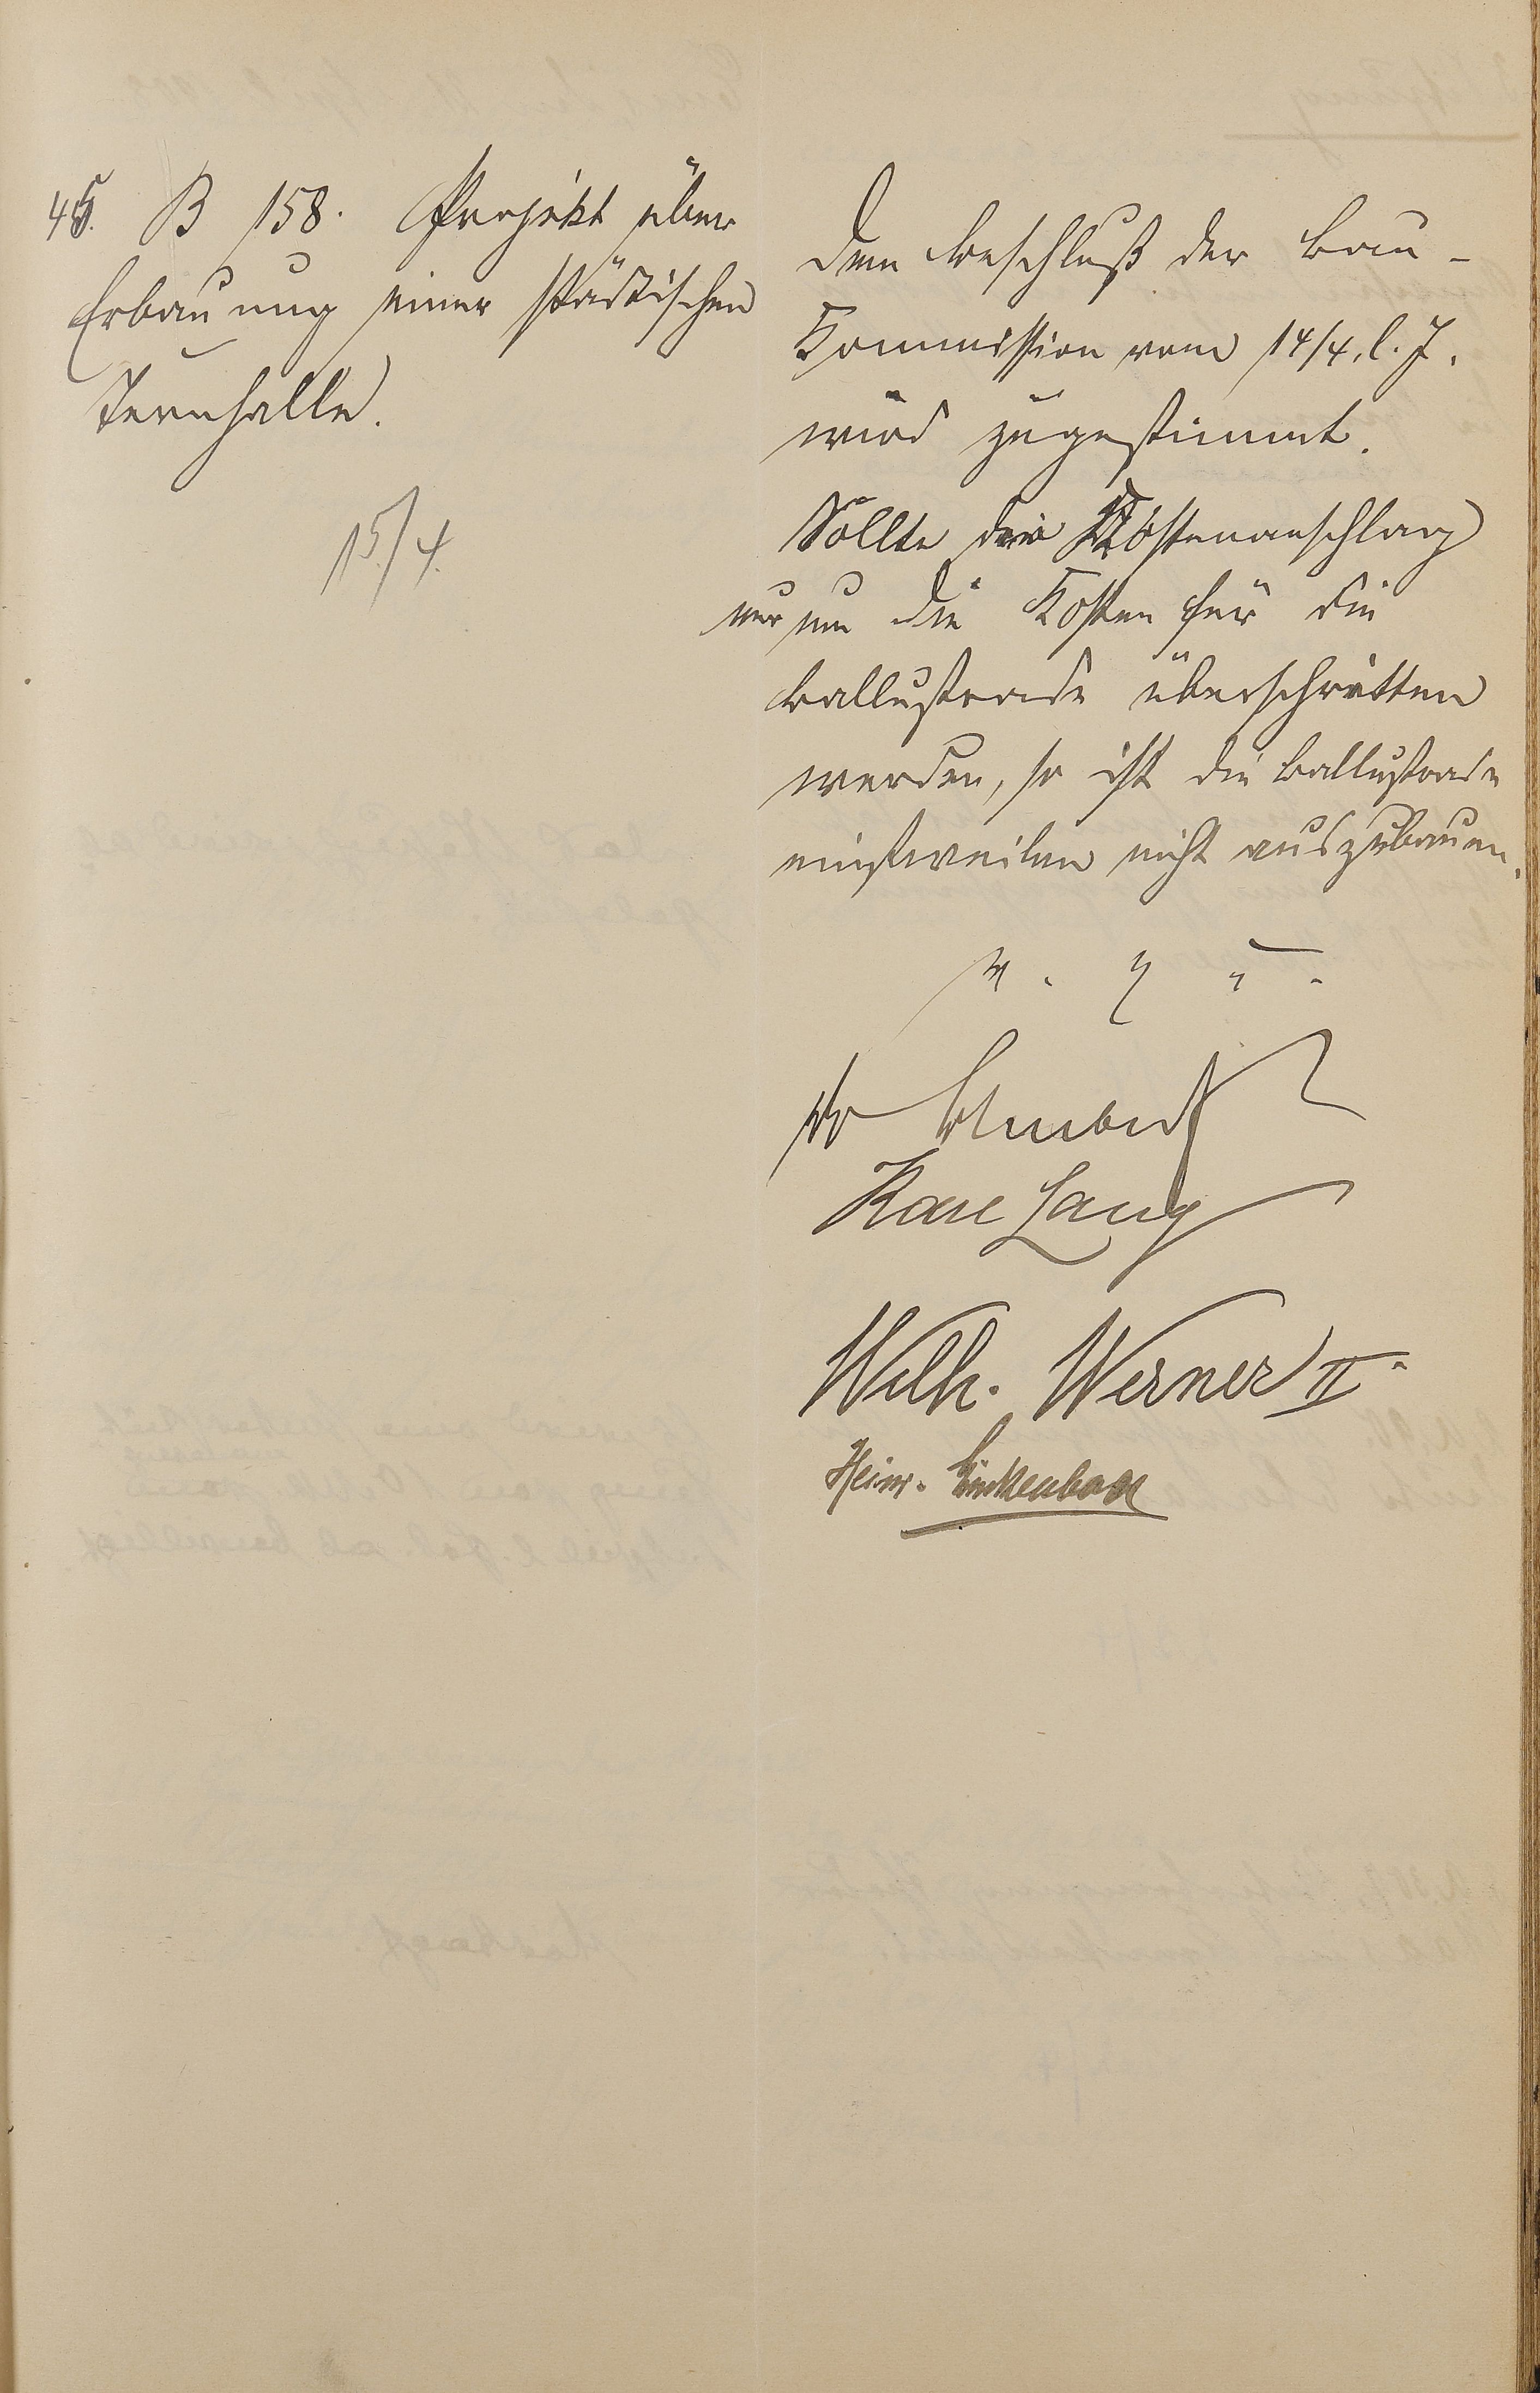 45. B 158. Projekt über
Erbauung einer städtischen
Turnhalle.
15/4.
Dem Beschluß der Bau-
Kommission vom 14/4. l. J.
wird zugestimmt.
Sollte der Kostenanschlag
nur um die Kosten für die
Ballustrade überschritten
werden, so ist die Ballustrade
einstweilen nicht auszubauen.
v. g. u.
Dr Schubert
Karl Lang
Wilh. Werner II.
Heinr. Linkenbach